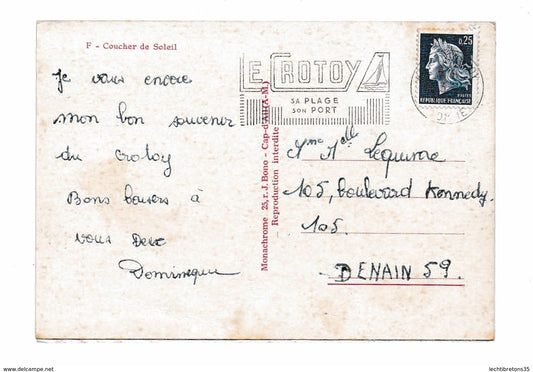 F - Coucher de Soleil
Je vous envoie
mon bon souvenir
du crotoy
Bons baisers à
vous Deux
Dominique
LE CROTOY
SA PLAGE
SON PORT
0,25
POSTES
REPUBLIQUE FRANÇAISE
Monachrome - 25, r. J. Bono - Cap-d'Ail (A.-M.)
Reproduction interdite
Mme Lequime
105, boulevard Kennedy.
105.
DENAIN 59.
https://www.delcampe.net
lechtibretons35